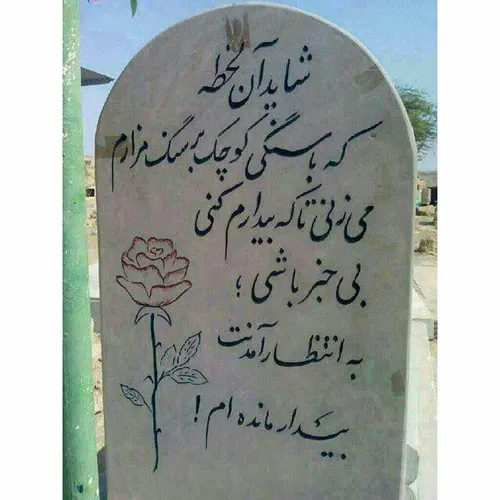 شاید آن لحظه
که با سنگی کوچک بر سنگ مزارم
می زنی تا که بیدارم کنی
بی خبر باشی ؛
به انتظار آمدنت
بیدار مانده ام !